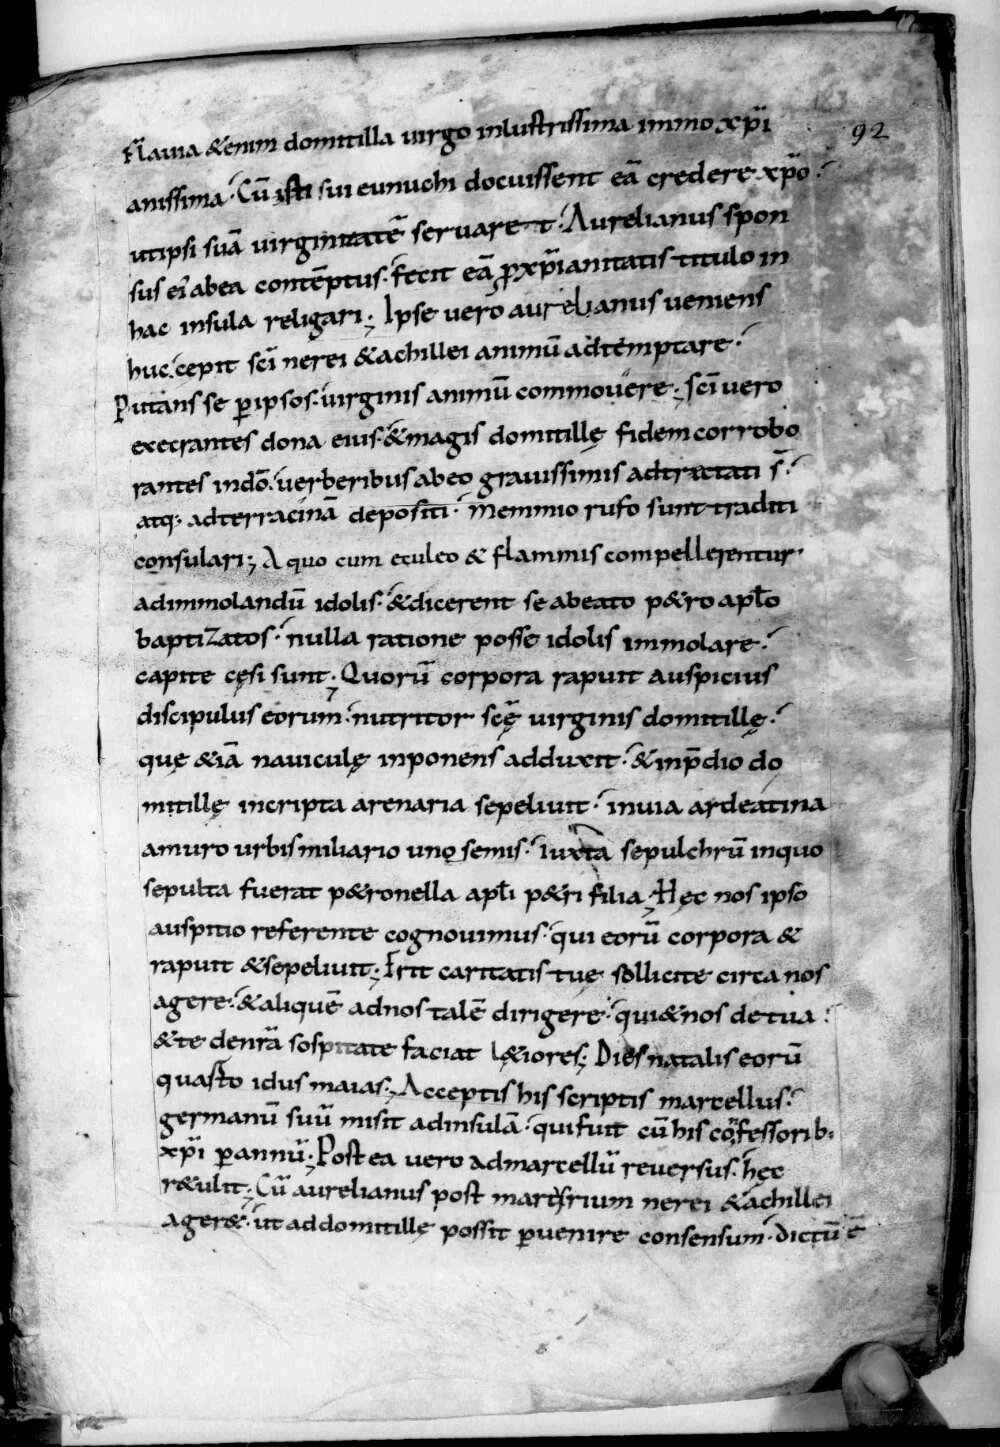 92
Flauia &enim domitilla uirgo inlustrissima immo xp̄i
anissima. Cū isti sui eunuchi docuissent eā credere xp̄o.
ut ipsi suā uirginitatē seruaret. Aurelianus spon
sus ei ab ea contēptus. fecit eā p xp̄ianitatis titulo in
hac insula religari; Ipse uero aurelianus ueniens
huc. cępit sc̄i nerei & achillei animū adtemptare.
Putans se p ipsos. uirginis animū commouere; sc̄i uero
execrantes dona eius. & magis domitillę fidem corrobo
rantes in dō. uerberibus ab eo grauissimis adtractati s̄.
atq; ad terracinā depositi. memmio rufo sunt traditi
consulari; A quo cum eculeo & flammis compellerentur
ad immolandū idolis. & dicerent se a beato p&ro apl̄o
baptizatos. nulla ratione posse idolis immolare.
capite cęsi sunt; Quorū corpora rapuit auspicius
discipulus eorum. nutritor scę̄ uirginis domitillę.
quę &iā nauiculę inponens adduxit. & in p̄dio do
mitillę in cripta arenaria sepeliuit. in uia ardeatina
a muro urbis miliario uno semis. iuxta sepulchrū in quo
sepulta fuerat p&ronella apl̄i p&ri filia; Hęc nos ipso
auspitio referente cognouimus. qui eorū corpora &
rapuit & sepeliuit; Erit caritatis tuę sollicite circa nos
agere. & aliquē ad nos talē dirigere. qui & nos de tua.
& te de nr̄a sospitate faciat l&iores; Dies natalis eorū
quarto idus maias; Acceptis his scriptis marcellus.
germanū suū misit ad insulā. qui fuit cū his cōfessorib;
xp̄i p annū; Post ea uero ad marcellū reuersus. hęc
r&ulit; Cū aurelianus post martyrium nerei & achillei
ager&. ut ad domitillę possit puenire consensum. dictū ē